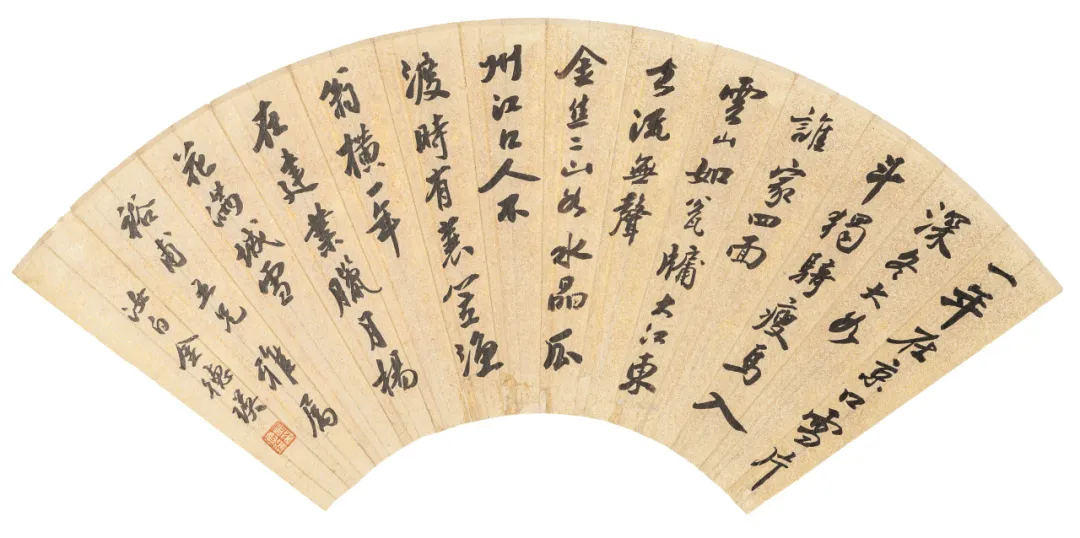 一年在京口雪片
深冬大如
斗獨騎瘦馬入
誰家四面
雲山如瓮牖大江東
去流無聲
金焦二山如水晶瓜
州江口人不
渡時有蓑笠漁
翁橫一年
在建業臘月楊
花滿城雪
裕甫五兄雅屬
汝白金德瑛